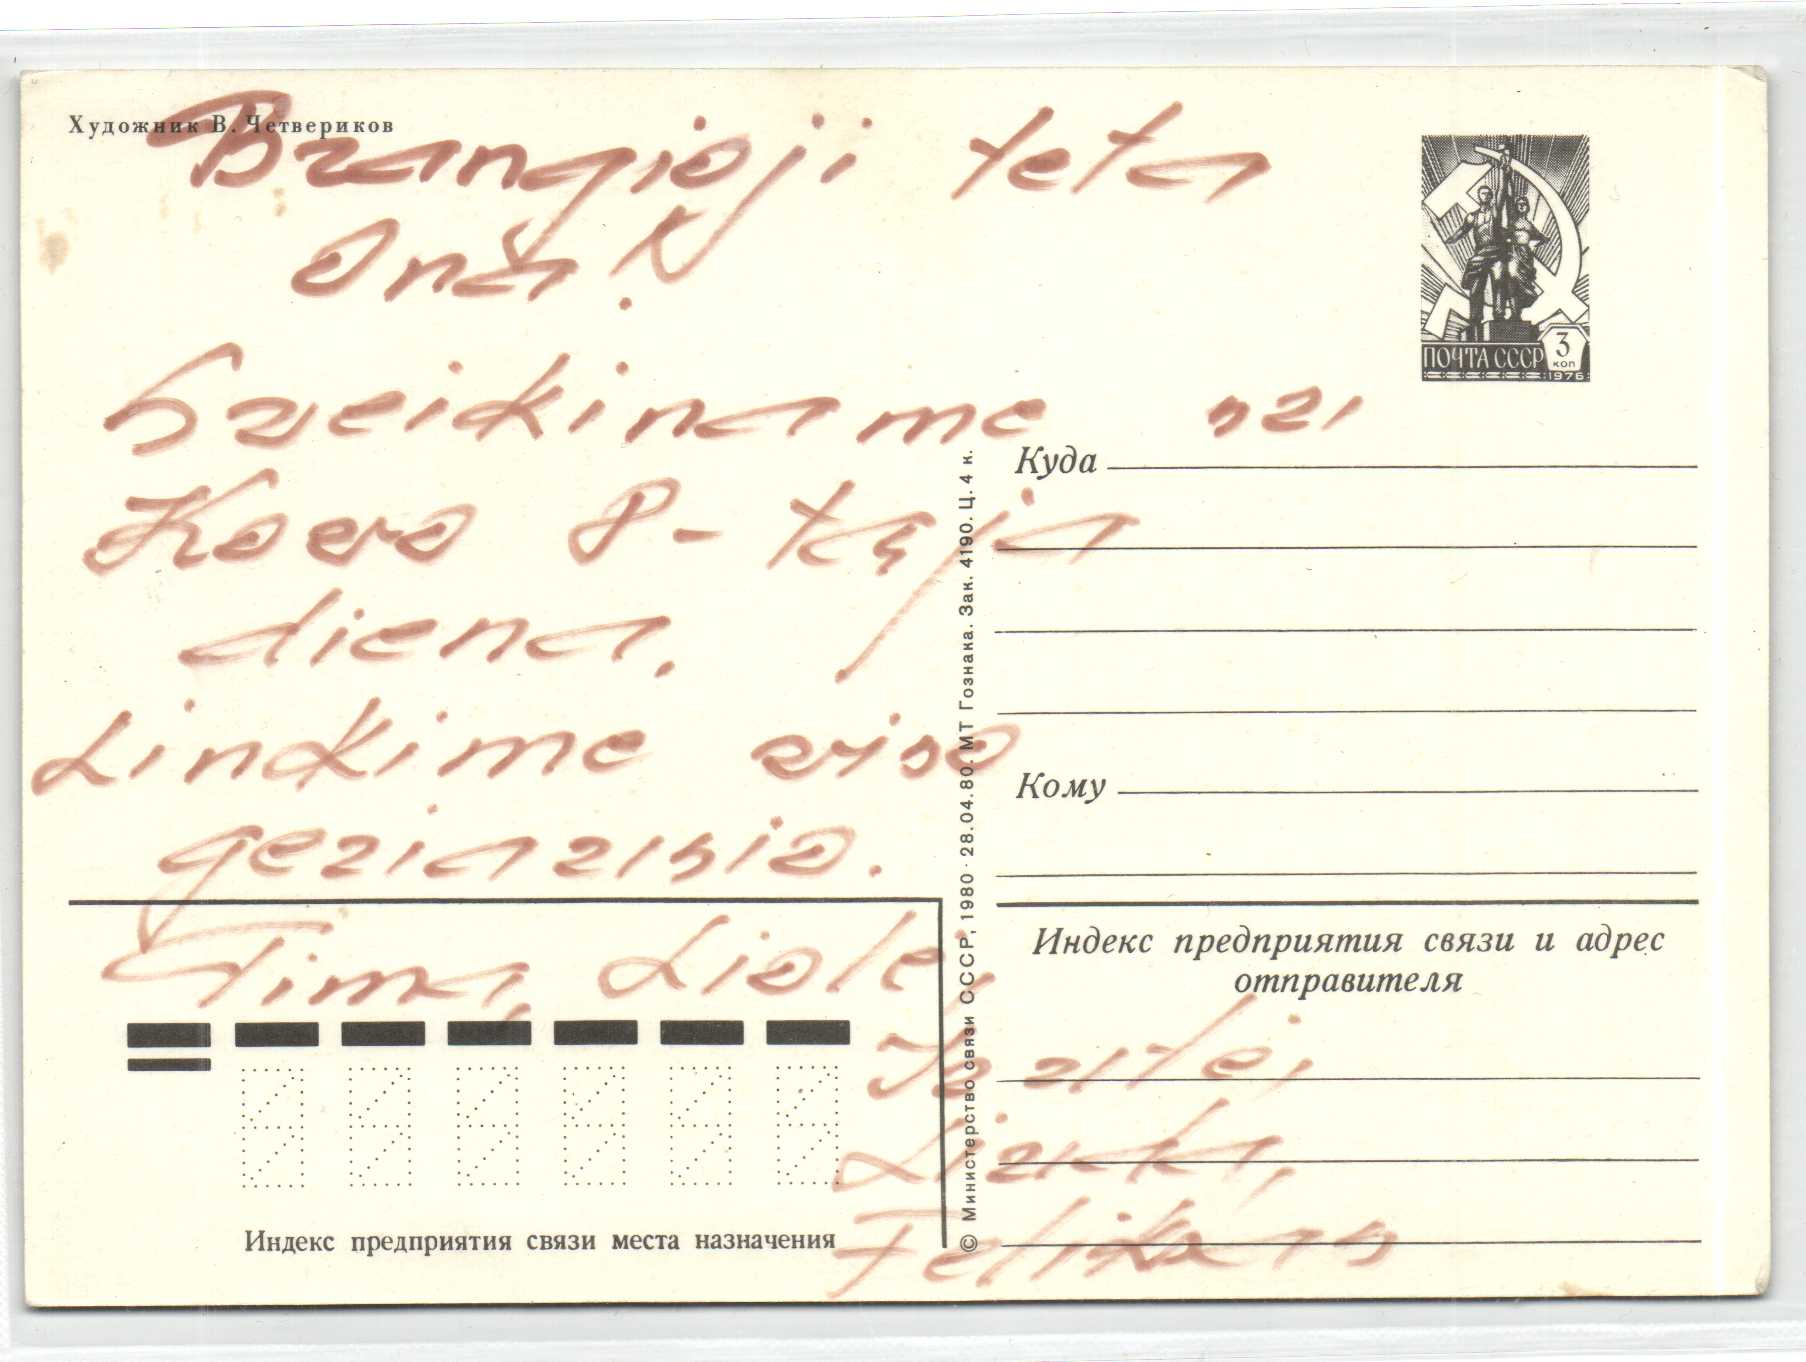 Художник В. Четвериков
Brangioji teta
Ona!
Sveikiname su
Kovo 8-tąja
diena.
Linkime viso
geriausio.
Tima, Liole,
ПОЧТА СССР 3 коп 1976
Куда
Кому
Индекс предприятия связи и адрес
отправителя
Feliksas
Индекс предприятия связи места назначения
© Министерство связи СССР, 1980 · 28.04.80. МТ Гознака. Зак. 4190. Ц. 4 к.